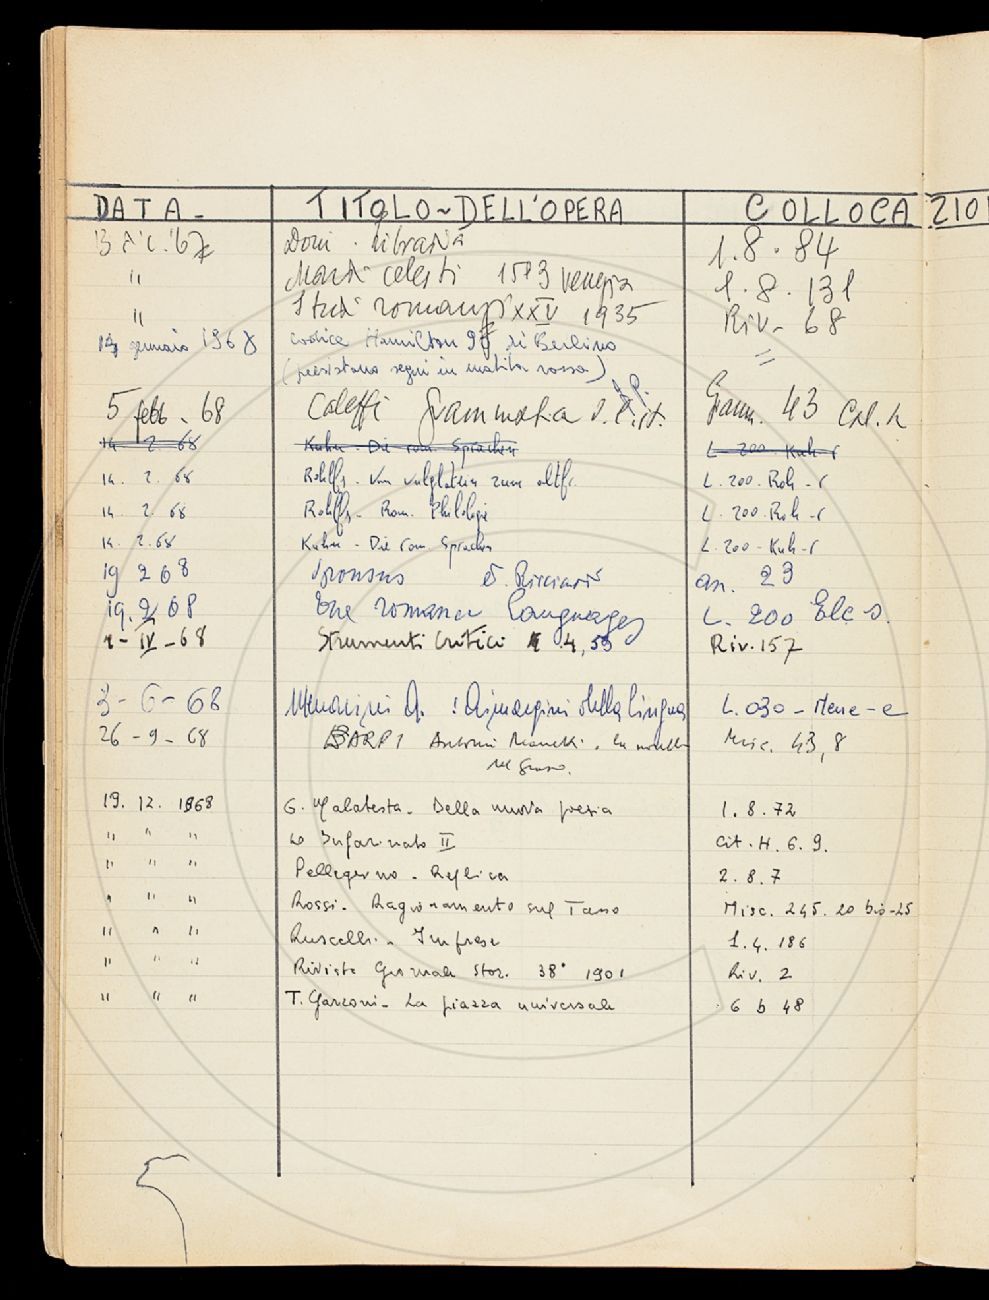 DATA - TITOLO ~ DELL'OPERA COLLOCAZIO
13 dic. '67 Doni . Libraria 1.8.84
" Mondi celesti 1583 Venezia 1.8.131
" Studi romanzi XXV 1935 Riv. 68
gennaio 1968 codice Hamilton 90 di Berlino =
(preesistono segni in matita rossa)
5 febb. 68 Caleffi Grammatica Gram. 43 Cal.
14 2 68 Kuhn - Die rom. Sprachen L 200 Kuh-r
14. 2. 68 Rohlfs - Vom vulglatein zum altfr. L. 200. Roh - r
14. 2. 68 Rohlfs - Rom. Philologie L. 200. Roh - r
14. 2. 68 Kuhn - Die rom Sprachen L. 200 - Kuh-r
19 2 68 Sponsus an. 23
19. 2 68 The romance Languages L. 200 Elc
1 - IV - 68 Strumenti Critici 4, 53 Riv. 157
3 - 6 - 68 Menarini A. : Ai margini della lingua L. 030 - Mene - e
26 - 9 - 68 BARBI Antonio Manetti . La novella Misc. 43, 8
del Grasso.
19. 12. 1968 G. Malatesta - Della nuova poesia 1. 8. 72
" " " Lo Infarinato II Cit. H. 6. 9.
" " " Pellegrino - Replica 2. 8. 7
" " " Rossi - Ragionamento sul Tasso Misc. 245. 20 bis-25
" " " Ruscelli - Imprese 1. 4. 186
" " " Rivista Giornale Stor. 38° 1901 Riv. 2
" " " T. Garzoni - La piazza universale 6 b 48